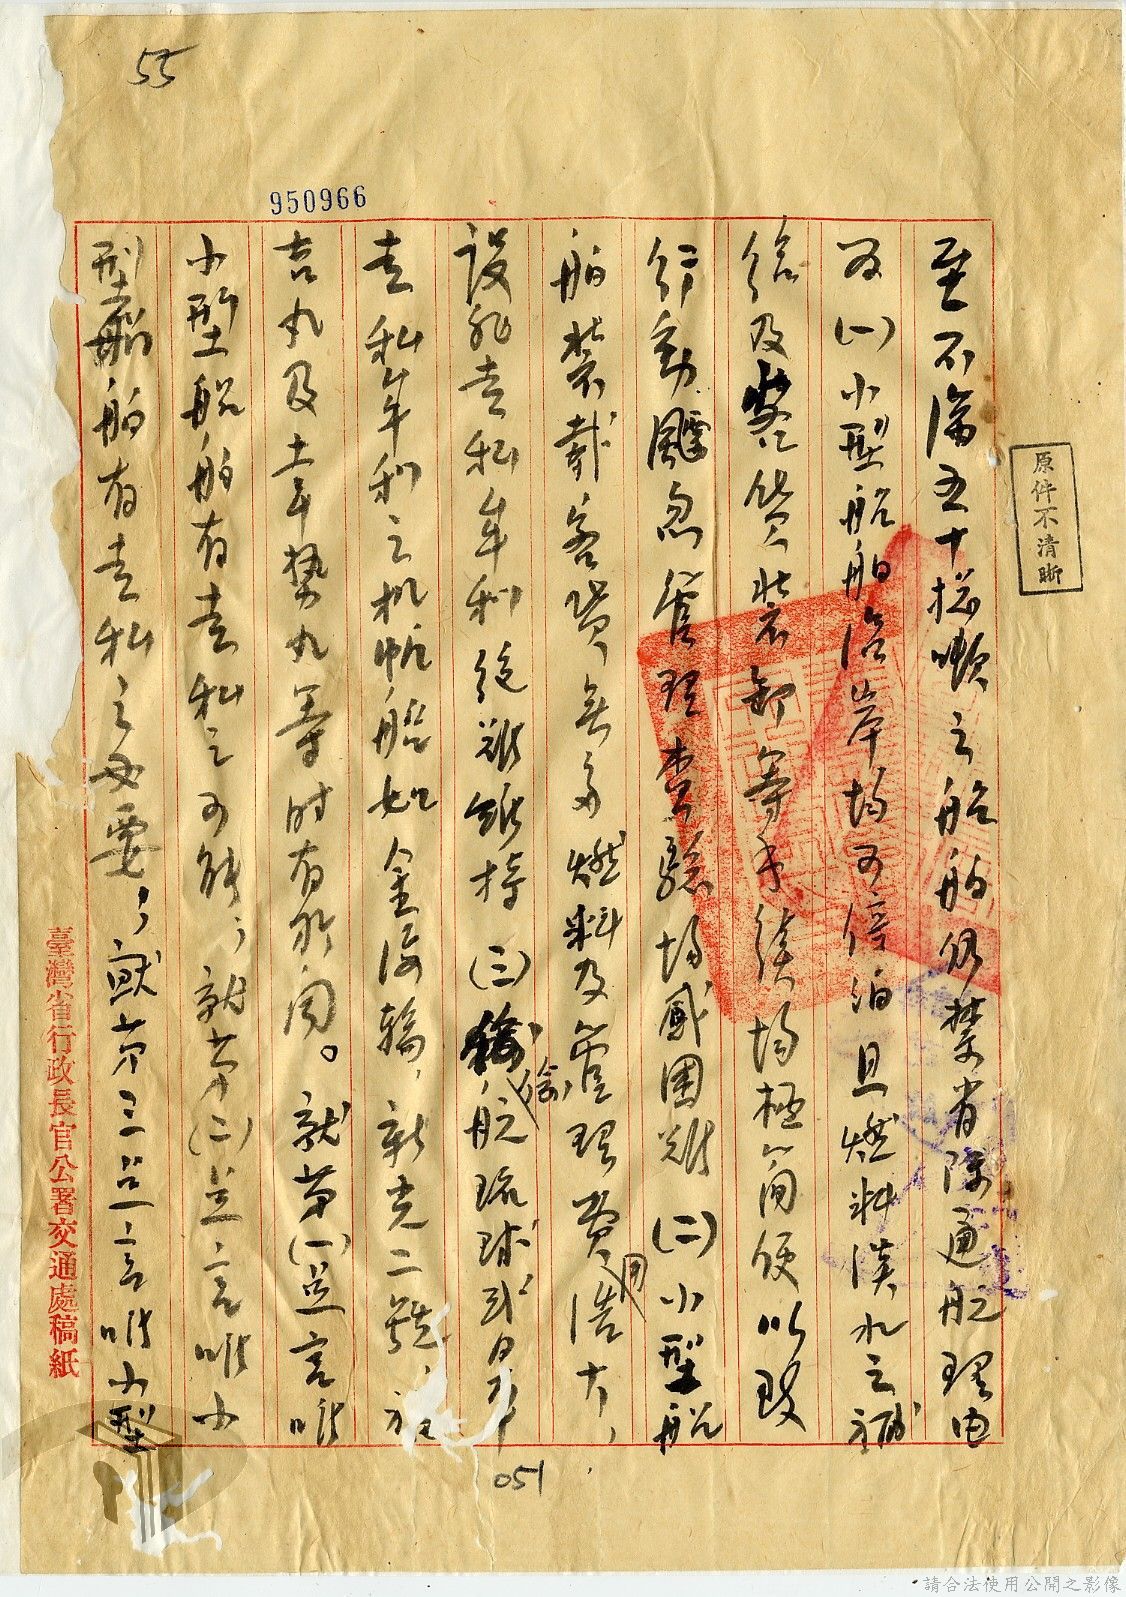 55
950966
至不滿五十總噸之船舶仍禁省際通航理由
為(一)小型船舶沿岸均可停泊且燃料淡水之補
給及客貨裝卸等手續均極簡便以致
行動飄忽管理查驗均感困難(二)小型船
舶裝載客貨無多燃料及管理費用浩大,
設非走私牟利絕難維持(三)航琉球或日本
走私牟利之机帆船如金海輪,新克二號,
吉丸及士幸勢丸等时有所聞。就第(一)點言唯
小型船舶有走私之可能,就第(二)點言唯小
型船舶有走私之必要,就第三點言唯小型
原件不清晰
臺灣省行政長官公署交通處稿紙
051
請合法使用公開之影像